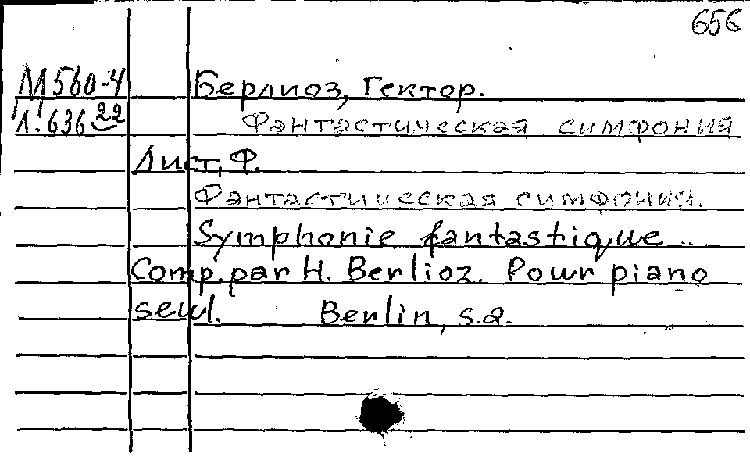 656
М560-4 Берлиоз, Гектор.
Л.636 22 Фантастическая симфония
Лист, Ф.
Фантастическая симфония.
Symphonie fantastique ..
Comp. par H. Berlioz. Pour piano
seul. Berlin, s.a.